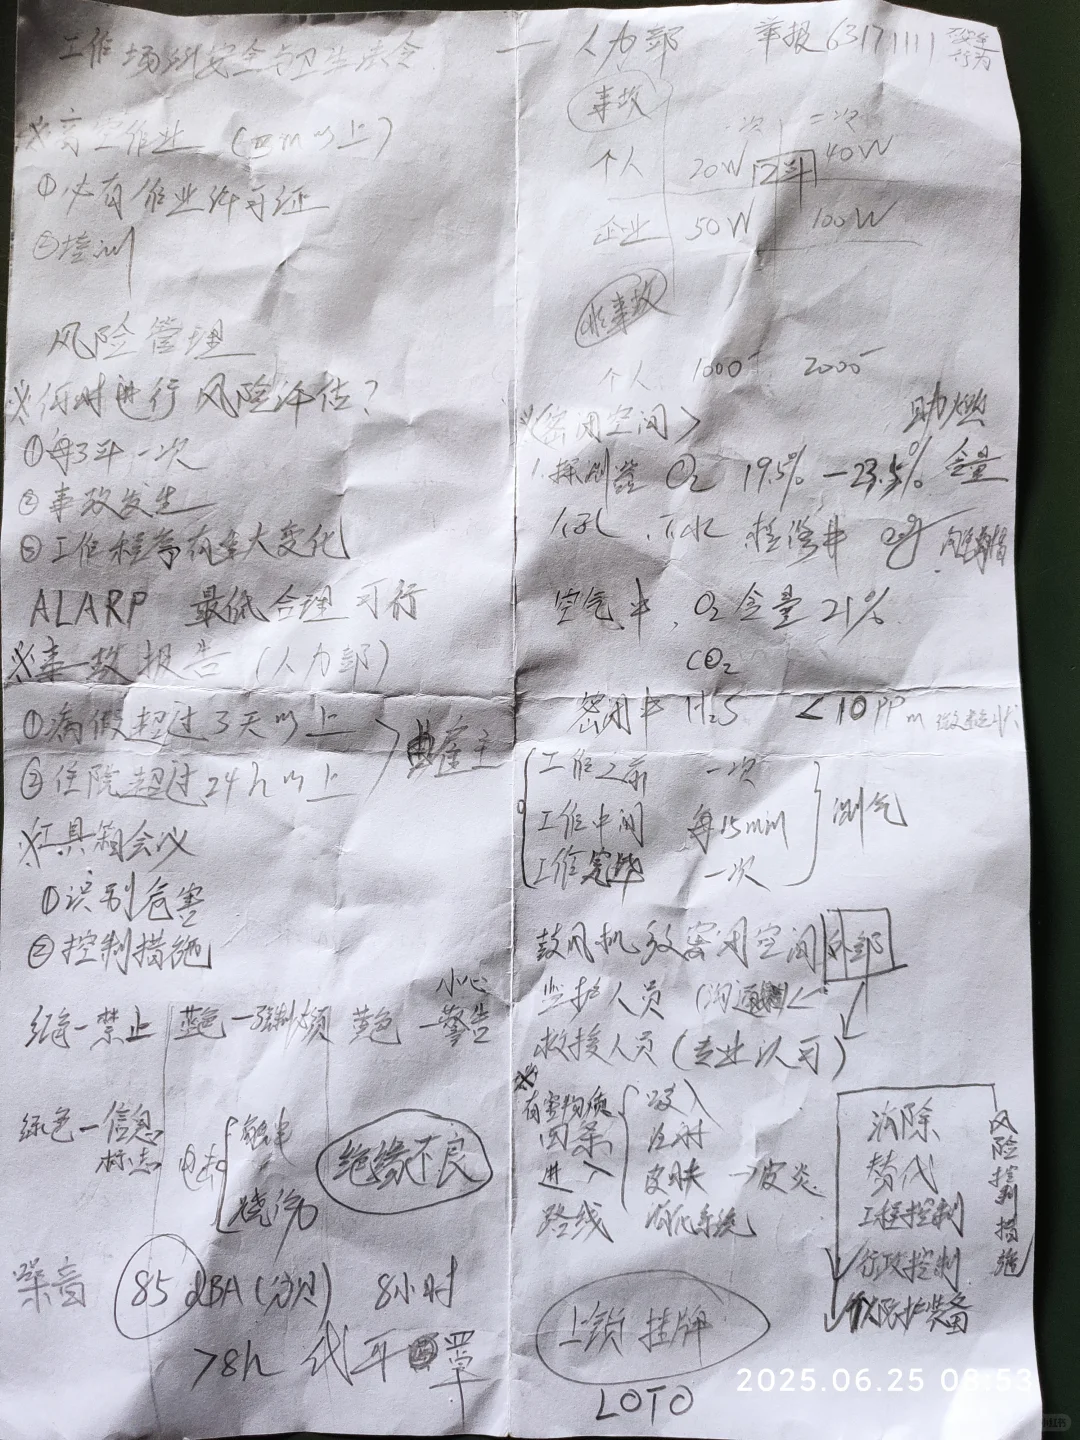 工作场所安全与卫生法令 — 人力部 举报63171111 不安全行为
※高空作业 (三m以上)
①必有作业许可证
②培训
风险管理
※何时进行风险评估?
①每3年一次
②事故发生
③工作程序有重大变化
ALARP 最低合理可行
※事故报告(人力部)
①病假超过3天以上
②住院超过24h以上
由雇主
※工具箱会议
①识别危害
②控制措施
红色—禁止 蓝色—强制 黄色—警告
小心
绿色—信息
标志
电机
触电
烧伤
绝缘不良
噪音 85 dBA(分贝) 8小时
>8h 代耳罩
事故
一次 二次
个人 20W 2年 40W
企业 50W 100W
非事故
个人 1000 2000
※<密闭空间>
助燃
1.探测器 O2 19.5%—23.5% 含量
人孔、下水、检修井
空气中、O2含量21%
CO2
密闭中 H2S <10PPm
工作之前 一次
工作中间 每15min
工作完毕 一次
测气
鼓风机放密闭空间外部
监护人员 (沟通
救援人员(专业认可)
※
有害物质
四条
进入
路线
吸入
注射
皮肤→皮炎
消化系统
消除
替代
工程控制
行政控制
个人防护装备
风险控制措施
上锁挂牌
LOTO
2025.06.25 08:53
小红书